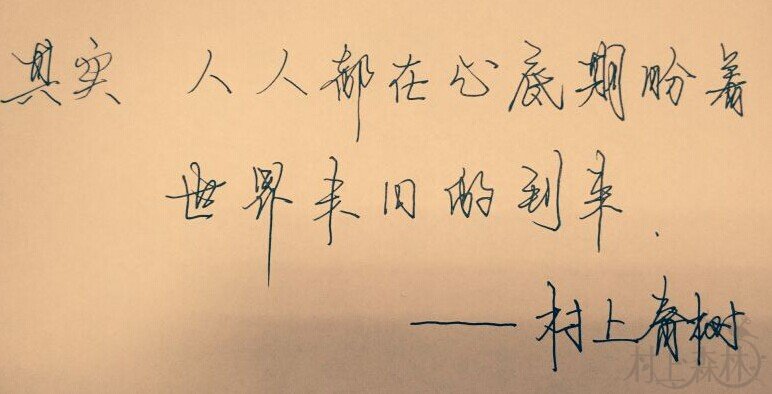 其实 人人都在心底期盼着
世界末日的到来.
——村上春树
村上森林